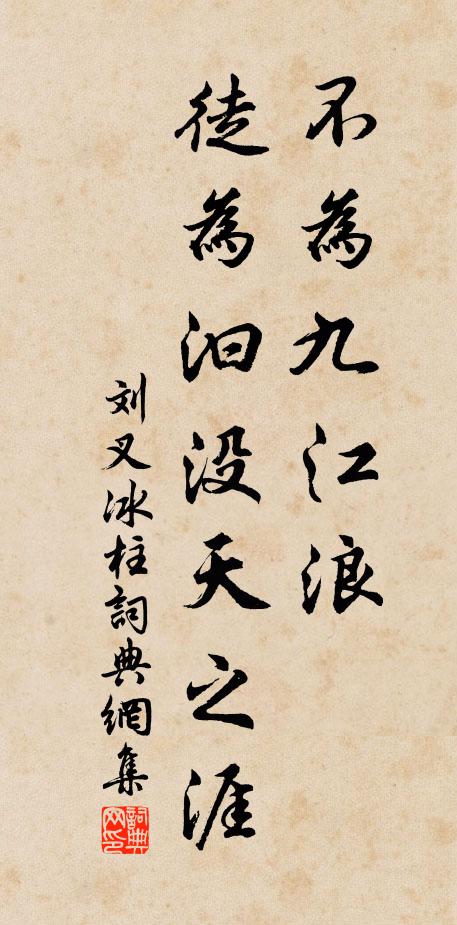 不為九江浪
徒為汩没天之涯
刘叉冰柱詞典網集
詞典网印